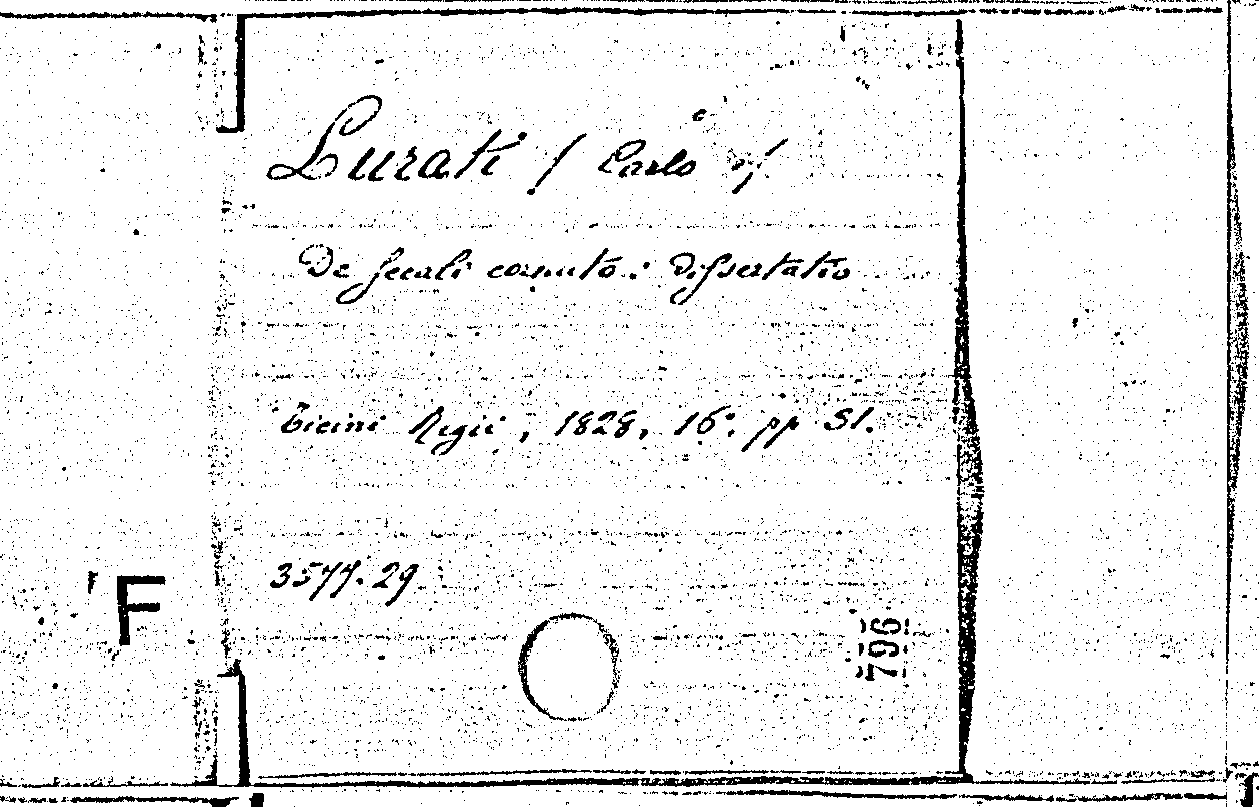 Lurati / Carlo /
De Secali cornuto: Dissertatio
Ticini Regii, 1828, 16°. pp 51.
3577.29
F
796